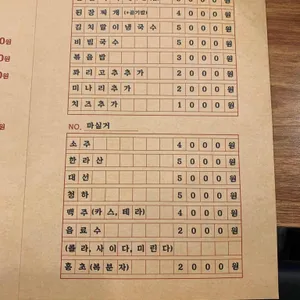 된장찌개(+공기밥) 4000원
김치말이냉국수 5000원
비빔국수 5000원
볶음밥 3000원
꽈리고추추가 2000원
미나리추가 2000원
치즈추가 1000원
NO. 마실거
소주 4000원
한라산 5000원
대선 5000원
청하 5000원
맥주(카스,테라) 4000원
음료수 2000원
(콜라,사이다,미린다)
홍초(복분자) 2000원